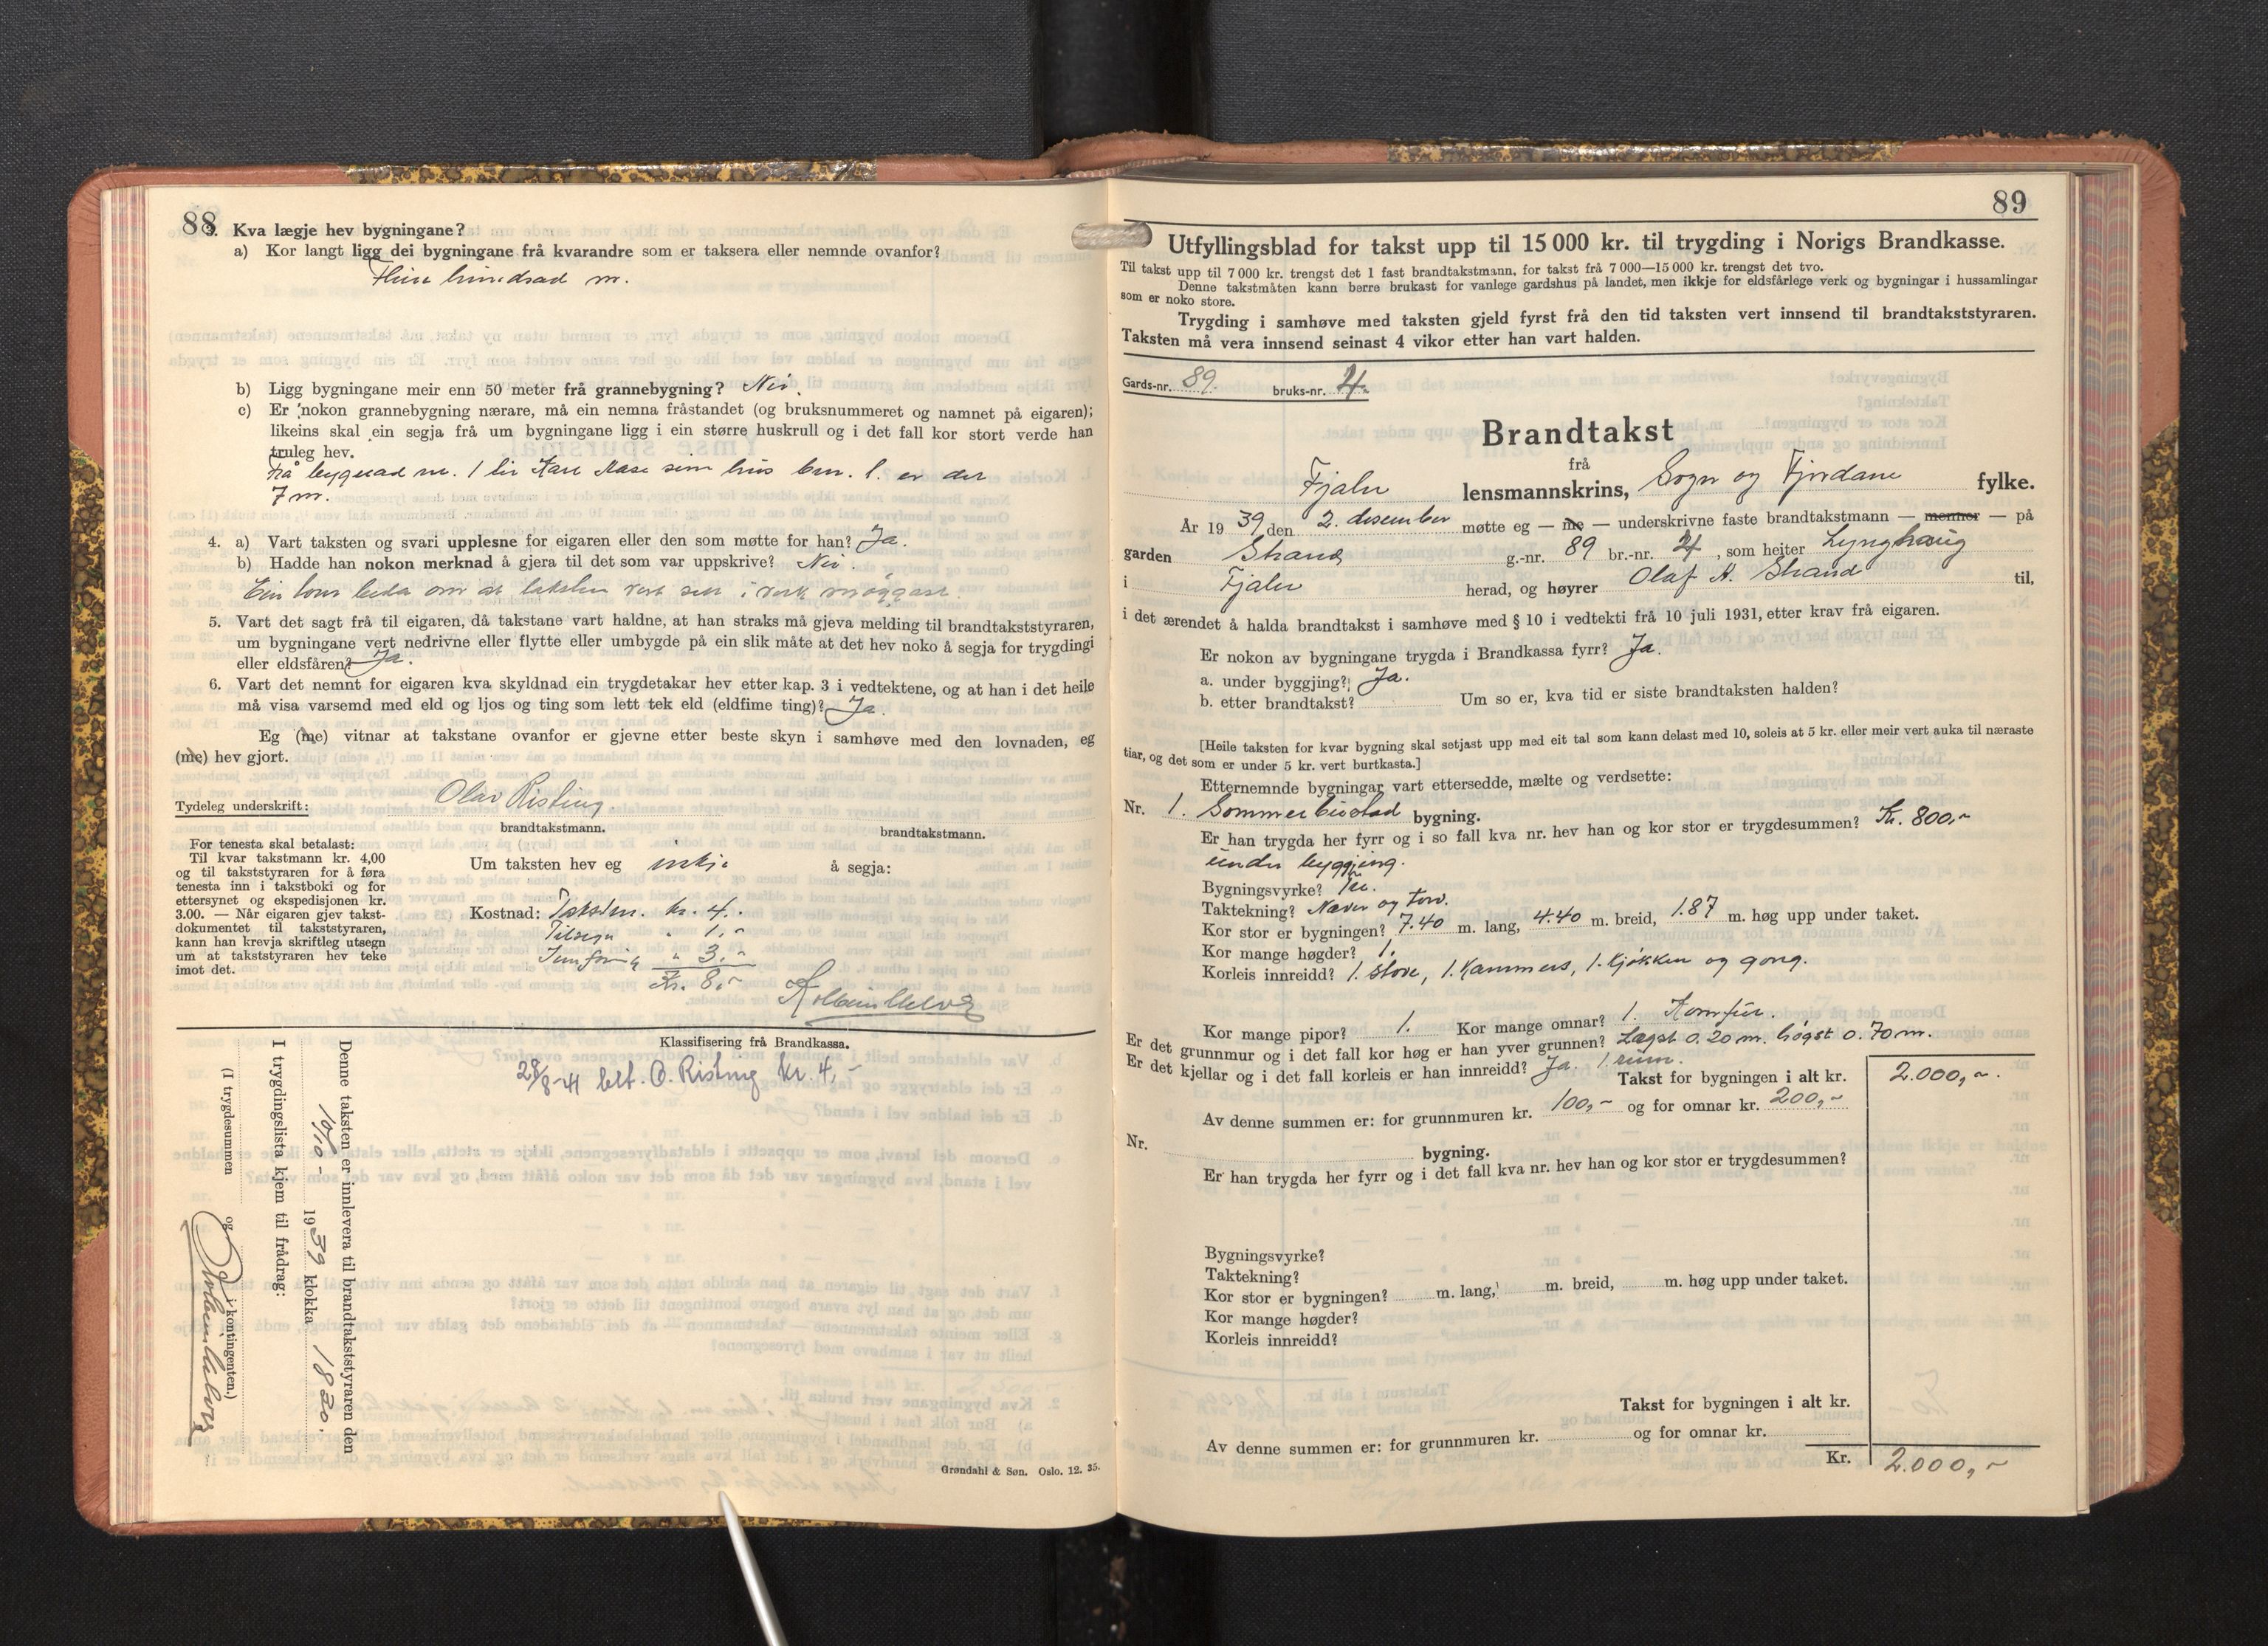 88
3. Kva lægje hev bygningane?
a) Kor langt ligg dei bygningane frå kvarandre som er taksera eller nemnde ovanfor?
Fleire hundrad m.
b) Ligg bygningane meir enn 50 meter frå grannebygning? Nei.
c) Er nokon grannebygning nærare, må ein nemna fråstandet (og bruksnummeret og namnet på eigaren);
likeins skal ein segja frå um bygningane ligg i ein større huskrull og i det fall kor stort verde han
truleg hev.
Frå bygnad nr. 1 til Kare Aase sine hus bnr. 1. er der
7 m.
4. a) Vart taksten og svari upplesne for eigaren eller den som møtte for han? Ja.
b) Hadde han nokon merknad å gjera til det som var uppskrive? Nei.
Ein beda om at taksten vert sett i verk
5. Vart det sagt frå til eigaren, då takstane vart haldne, at han straks må gjeva melding til brandtakststyraren,
um bygningane vert nedrivne eller flytte eller umbygde på ein slik måte at det hev noko å segja for trygdingi
eller eldsfåren? Ja.
6. Vart det nemnt for eigaren kva skyldnad ein trygdetakar hev etter kap. 3 i vedtektene, og at han i det heile
må visa varsemd med eld og ljos og ting som lett tek eld (eldfime ting)? Ja.
Eg (me) vitnar at takstane ovanfor er gjevne etter beste skyn i samhøve med den lovnaden, eg
(me) hev gjort.
Tydeleg underskrift: Olav Risting.
brandtakstmann. brandtakstmann.
For tenesta skal betalast:
Til kvar takstmann kr. 4,00
og til takststyraren for å føra
tenesta inn i takstboki og for
ettersynet og ekspedisjonen kr.
3.00. — Når eigaren gjev takst-
dokumentet til takststyraren,
kann han krevja skriftleg utsegn
um at takststyraren hev teke
imot det.
Um taksten hev eg inkje å segja:
Kostnad: Taksten. kr. 4.-
Tilsegn " 1,-
Innføring " 3,-
Kr. 8,-
Klassifisering frå Brandkassa.
28/8-41 belt. O. Risting kr. 4,-
Denne taksten er innlevera til brandtakststyraren den
10/10 - 1939 klokka 18 20.
I trygdingslista kjem til frådrag:
(I trygdesummen og i kontingenten.)
Grøndahl & Søn. Oslo. 12. 35.
89
Utfyllingsblad for takst upp til 15 000 kr. til trygding i Norigs Brandkasse.
Til takst upp til 7 000 kr. trengst det 1 fast brandtakstmann, for takst frå 7 000—15 000 kr. trengst det tvo.
Denne takstmåten kann berre brukast for vanlege gardshus på landet, men ikkje for eldsfårlege verk og bygningar i hussamlingar
som er noko store.
Trygding i samhøve med taksten gjeld fyrst frå den tid taksten vert innsend til brandtakststyraren.
Taksten må vera innsend seinast 4 vikor etter han vart halden.
Gards-nr. 89. bruks-nr. 4.
Brandtakst
frå
Fjaler lensmannskrins, Sogn og Fjordane fylke.
År 1939 den 2. desember møtte eg — me — underskrivne faste brandtakstmann — menner — på
garden Strand g.-nr. 89 br.-nr. 4, som heiter Lynghaug
i Fjaler herad, og høyrer Olaf A. Strand til,
i det ærendet å halda brandtakst i samhøve med § 10 i vedtekti frå 10 juli 1931, etter krav frå eigaren.
Er nokon av bygningane trygda i Brandkassa fyrr? Ja.
a. under byggjing? Ja.
b. etter brandtakst? Um so er, kva tid er siste brandtaksten halden?
[Heile taksten for kvar bygning skal setjast upp med eit tal som kann delast med 10, soleis at 5 kr. eller meir vert auka til næraste
tiar, og det som er under 5 kr. vert burtkasta.]
Etternemnde bygningar vart ettersedde, mælte og verdsette:
Nr. 1. Sommerbustad bygning.
Er han trygda her fyrr og i so fall kva nr. hev han og kor stor er trygdesummen? Kr. 800,-
under byggjing.
Bygningsvyrke? Tre.
Taktekning? Næver og torv.
Kor stor er bygningen? 7.40 m. lang, 4.40 m. breid, 1.87 m. høg upp under taket.
Kor mange høgder? 1.
Korleis innreidd? 1. stove, 1. kammers, 1. kjøkken og gong.
Kor mange pipor? 1. Kor mange omnar? 1. Komfur.
Er det grunnmur og i det fall kor høg er han yver grunnen? Lægst 0.20 m. høgst 0.70 m.
Er det kjellar og i det fall korleis er han innreidd? Ja. 1 rum.
Takst for bygningen i alt kr. 2.000,-.
Av denne summen er: for grunnmuren kr. 100,- og for omnar kr. 200,-
Nr. bygning.
Er han trygda her fyrr og i det fall kva nr. hev han og kor stor er trygdesummen?
Bygningsvyrke?
Taktekning?
Kor stor er bygningen? m. lang, m. breid, m. høg upp under taket.
Kor mange høgder?
Korleis innreidd?
Takst for bygningen i alt kr.
Av denne summen er: for grunnmuren kr. og for omnar kr.
Kr. 2.000,-